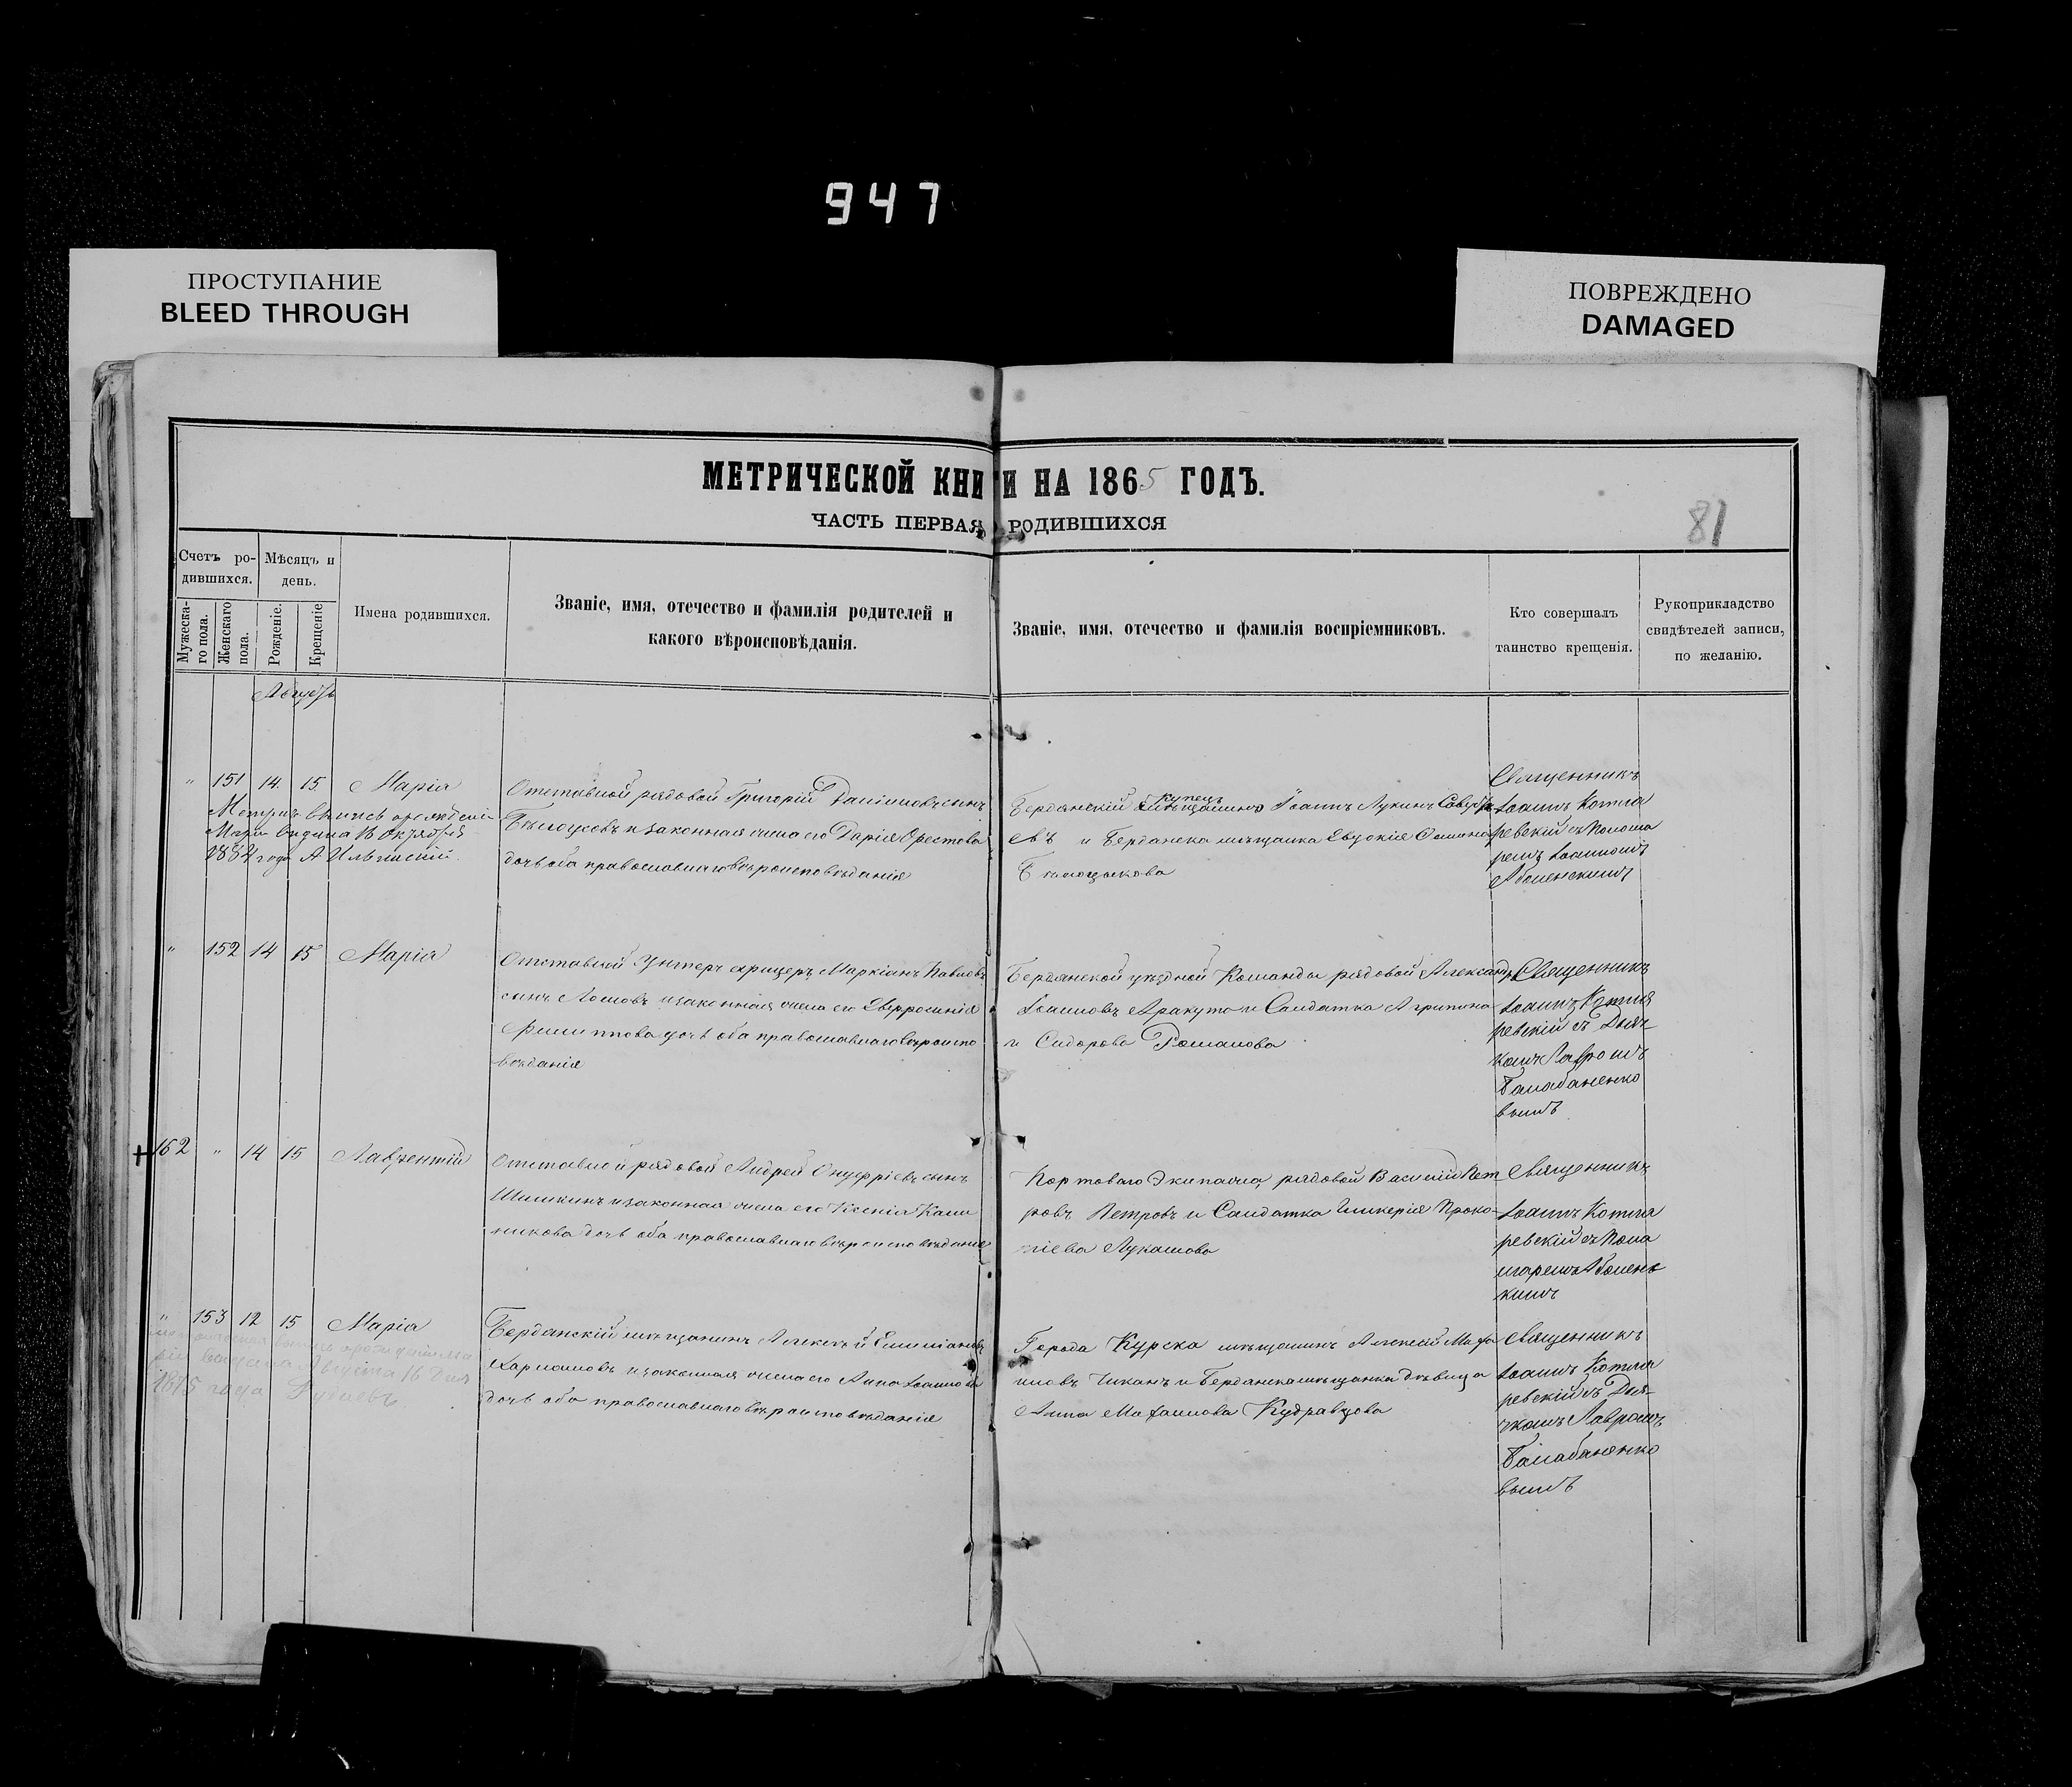 947
ПРОСТУПАНИЕ
BLEED THROUGH
ПОВРЕЖДЕНО
DAMAGED
МЕТРИЧЕСКОЙ КНИ И НА 1865 ГОДЪ.
ЧАСТЬ ПЕРВАЯ РОДИВШИХСЯ
81
Счетъ ро-
дившихся.
Мужеска-
го пола.
Женскаго
пола.
Мѣсяцъ и
день.
Рожденіе.
Крещеніе
Имена родившихся.
Званіе, имя, отечество и фамилія родителей и
какого вѣроисповѣданія.
Званіе, имя, отечество и фамилія воспріемниковъ.
Кто совершалъ
таинство крещенія.
Рукоприкладство
свидѣтелей записи,
по желанію.
Августъ
" 151 14. 15. Марія
Отставной рядовой Григорій сынъ
и законная жена его Дарія Орестова
дочь оба православнаго вѣроисповѣданія
Бердянскій купецъ Іоаннъ Лукинъ
евъ и Бердянска мѣщанка Евдокія
Священникъ
Іоаннъ Котля
ревскій съ Понома
ремъ Іоанномъ
Аболенскимъ
" 152 14 15 Марія
Отставной Унтеръ офицеръ Маркіанъ Павловъ
сынъ и законная жена его Евфросинія
Филиппова дочь оба православнаго вѣроиспо
вѣданія
Бердянской уѣздной Команды рядовой Александръ
Іоанновъ Аракута и Салдатка Агрипина
и Сидорова Романова
Священникъ
Іоаннъ Котля
ревскій съ Дьяч
комъ Лавромъ
Балабаненко
вымъ
+ 162 " 14 15 Лаврентій
Отставной рядовой Андрей Онуфріевъ сынъ
Шишкинъ и законная жена его Ксенія Кали
никова дочь оба православнаго вѣроисповѣданія
Портоваго Экипажа рядовой Василій Пет
ровъ Петровъ и Салдатка Гликерія Проко-
піева Лукашова
Священникъ
Іоаннъ Котля
ревскій съ Поно
маремъ Аболенс
кимъ
" 153 12 15 Марія
Бердянскій мѣщанинъ Алексѣй
и законная жена его Анна Іоаннова
дочь оба православнаго вѣроисповѣданія
Города Курска мѣщанинъ Алексѣй
Чиканъ и Бердянска мѣщанка дѣвица
Анна Кудравцова
Священникъ
Іоаннъ Котля
ревскій съ Дья-
чкомъ Лавромъ
Балабаненко
вымъ